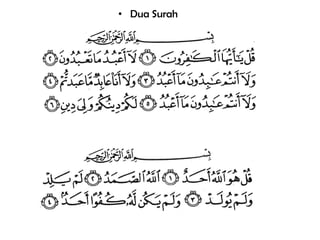 • Dua Surah
بِسْمِ اللَّهِ الرَّحْمَٰنِ الرَّحِيمِ
قُلْ يَا أَيُّهَا الْكَافِرُونَ ﴿١﴾ لَا أَعْبُدُ مَا تَعْبُدُونَ ﴿٢﴾
وَلَا أَنْتُمْ عَابِدُونَ مَا أَعْبُدُ ﴿٣﴾ وَلَا أَنَا عَابِدٌ مَا عَبَدْتُمْ ﴿٤﴾
وَلَا أَنْتُمْ عَابِدُونَ مَا أَعْبُدُ ﴿٥﴾ لَكُمْ دِينُكُمْ وَلِيَ دِينِ ﴿٦﴾
بِسْمِ اللَّهِ الرَّحْمَٰنِ الرَّحِيمِ
قُلْ هُوَ اللَّهُ أَحَدٌ ﴿١﴾ اللَّهُ الصَّمَدُ ﴿٢﴾ لَمْ يَلِدْ
وَلَمْ يُولَدْ ﴿٣﴾ وَلَمْ يَكُنْ لَهُ كُفُوًا أَحَدٌ ﴿٤﴾